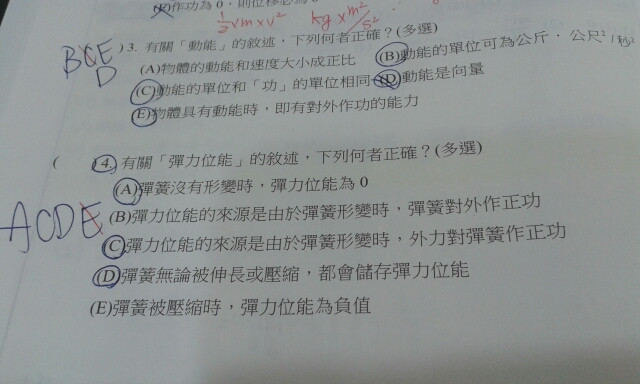 (K)作功為0,則位移必為0
1/2 v m x v² kg x m²/s²
BCE D )3. 有關「動能」的敘述,下列何者正確?(多選)
(A)物體的動能和速度大小成正比 (B)動能的單位可為公斤.公尺²/秒²
(C)動能的單位和「功」的單位相同 (D)動能是向量
(E)物體具有動能時,即有對外作功的能力
( )4. 有關「彈力位能」的敘述,下列何者正確?(多選)
(A)彈簧沒有形變時,彈力位能為0
ACDE (B)彈力位能的來源是由於彈簧形變時,彈簧對外作正功
(C)彈力位能的來源是由於彈簧形變時,外力對彈簧作正功
(D)彈簧無論被伸長或壓縮,都會儲存彈力位能
(E)彈簧被壓縮時,彈力位能為負值